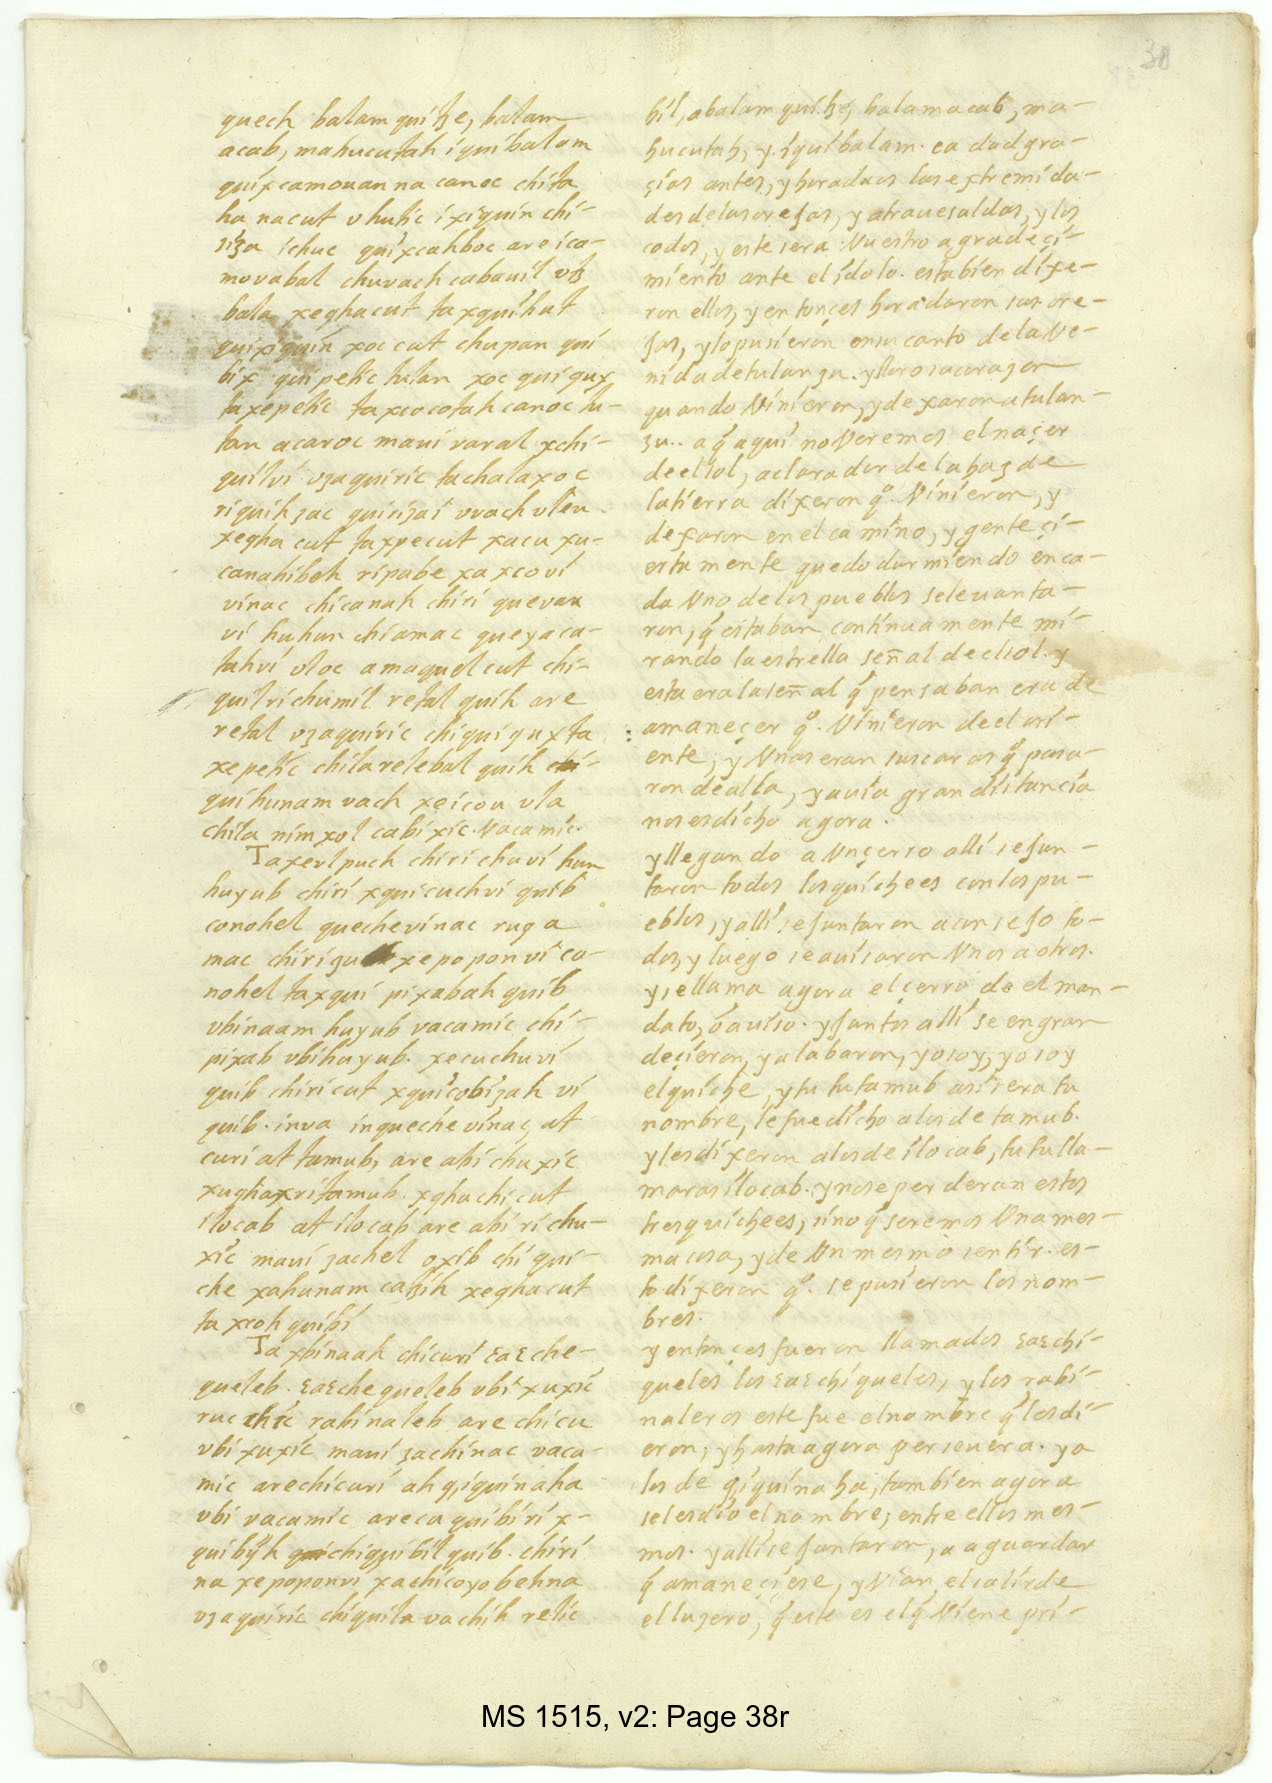 38
quech balam quitze, balam
acab, mahucutah iquibalam
quixcamouan na canoc chita
ha nacut v hutic ixiquin chi-
siza ichuc quixcahboc are ica-
movabal chuvach cabauil vtz
bala xeghacut taxquihut
quixiquin xoc cut chupan qui
bix quipetic tulan xoc quiqux
taxepetic taxcocotah canoc tu-
lan acaroc maui varal xchi-
quilvi vzaquiric tachalaxoc
riquih zac quirizai vvach vleu
xegha cut taxpecut xacu xu-
canahibeh ripabe xaxcovi
vinac chicanah chiri quevar
vi huhun chiamac queyaca-
tahvi vloc amaquel cut chi-
quilrichumil retal quih are
retal vzaquiric chiquiqux ta
xepetic chila relebal quih chi-
quihunam vach xeicou vla
chila nim xol cabixic. Vacamic.
Taxeul puch chiri chuvi hun
huyub chiri xquicuchvi quib
conohel quechevinac ruq a
mac chiri xepoponvi co-
nohel taxqui pixabah quib
vbinaam huyub vacamic chi-
pixab vbihuyub. xecuchuvi
quib chiricut xquicobizah vi
quib. inva inqueche vinac, at
curi at tamub, are abi chuxic
xughaxri tamub. xghachicut
ilocab at ilocab are abi richu-
xic maui zachel oxib chi qui-
che xahunam catzih xeghacut
taxcoh quibi
Ta xbinaah chicuri cacche-
queleb. cacchequeleb vbi xuxic
ruc chic rabinaleb are chicu
vbi xuxic maui zachinac vaca-
mic arechicuri ah q,iquinaha
vbi vacamic areca quibiri x-
quibijh chiquibil quib. chiri
na xepoponvi xachicoyobehna
vzaquiric chiquila vachih relic
bil, a balam quitze, balamacab, ma-
hucutah, y iquibalam. ea dad gra-
çias antes, y horadaos las extremida-
des de las orejas, y atrauesaldas, y los
codos, y este sera Vuestro agradeçi-
miento ante el idolo. esta bien dixe-
ron ellos, y entonçes horadaron sus ore-
jas, y lo pusieron en su canto de la Ve-
nida de tulan zu. y lloro su corazon
quando Vinieron, y dexaron a tulan-
zu.. a q̃ aqui no Veremos el naçer
de el sol, aclarador de la haz de
la tierra dixeron qº. Vinieron, y
dexaron en el camino, y gente çi-
erta mente quedo durmiendo en ca-
da Vno de los pueblos se leuanta-
ron, q̃ estaban continuamente mi-
rando la estrella señal de el sol. y
esta era la señal q̃ pensaban era de
amaneçer qº. Vinieron de el ori-
ente, y Vnas eran sus caras qº pasa-
ron de alla, y auia gran distancia
nos es dicho agora.
y llegando a Vn çerro alli se jun-
taron todos los quichees con los pu-
eblos, y alli se juntaron a consejo to-
dos, y luego se auisaron Vnos a otros.
y se llama agora el çerro de el man-
dato, ó auiso. y juntos alli se engran
deçieron, y alabaron, yo soy, yo soy
el quiche, y tu tu tamub asi sera tu
nombre, le fue dicho a los de tamub.
y les dixeron a los de ilocab, tu tulla-
maras ilocab. y no se perderan estos
tres quichees, sino q̃ seremos Vna mes-
ma cosa, y de Vn mesmo sentir. es-
to dixeron qº. se pusieron los nom-
bres.
y entonçes fueron llamados cacchi-
queles los cacchiqueles, y los rabi-
naleros este fue el nombre q̃ les di-
eron, y hasta agora perseuera. y a
los de q,iquinaha, tambien agora
se les dio el nombre, entre ellos mes-
mos. y alli se juntaron, a aguardar
q̃ amaneçiese, y Vian el salir de
el luzero, q̃ este es el q̃ Viene pri-
MS 1515, v2: Page 38r